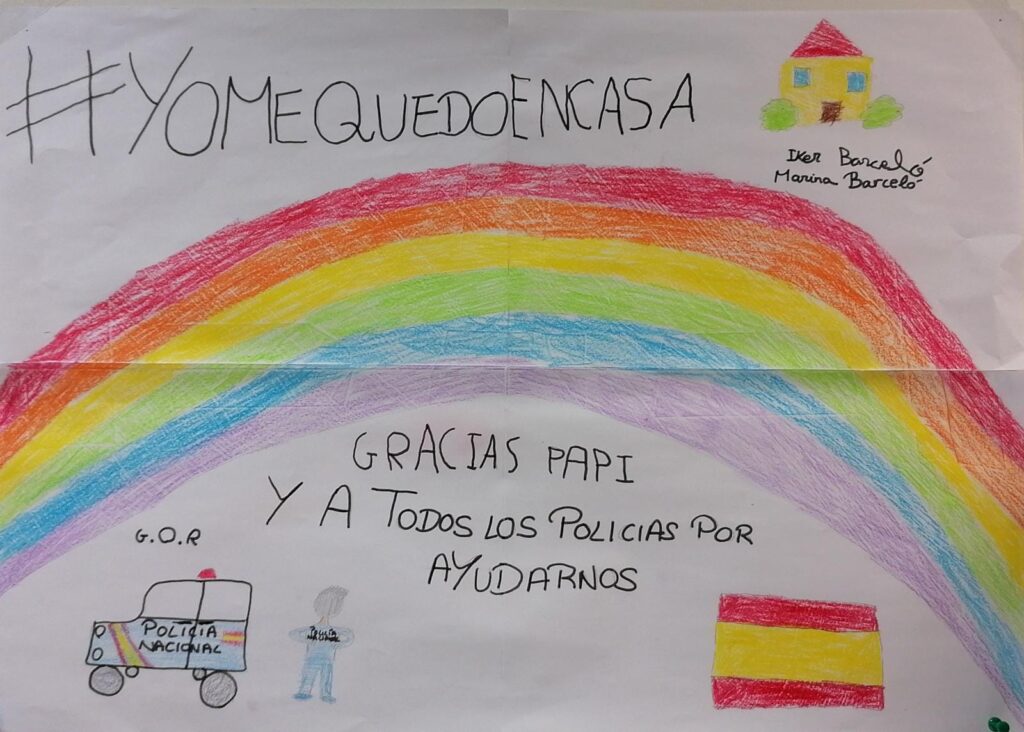 #YOMEQUEDOENCASA
Iker Barceló
Marina Barceló
GRACIAS PAPI
Y A TODOS LOS POLICIAS POR
AYUDARNOS
G.O.R
POLICIA
NACIONAL
POLICIA
NACIONAL